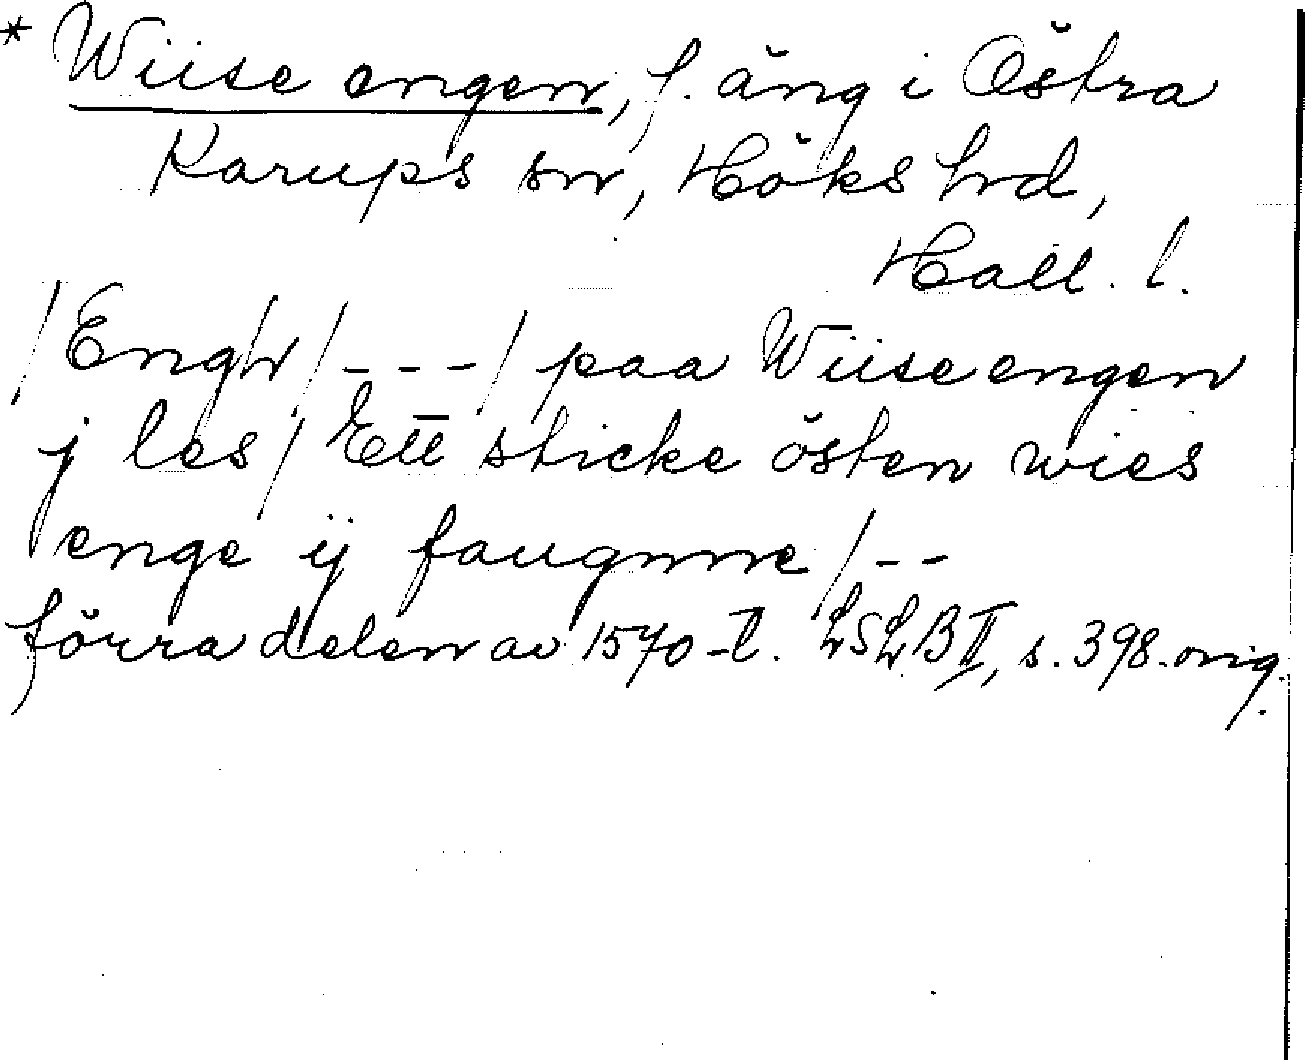 * Wiise engen, f. äng i Östra
Karups sn, Höks hrd,
Hall. l.
/Engh/ - - - / paa Wiise engen
j les/ Ett sticke östen wies
enge ij faugnne/ - -
förra delen av 1570-t. LSLB II, s. 398. orig.